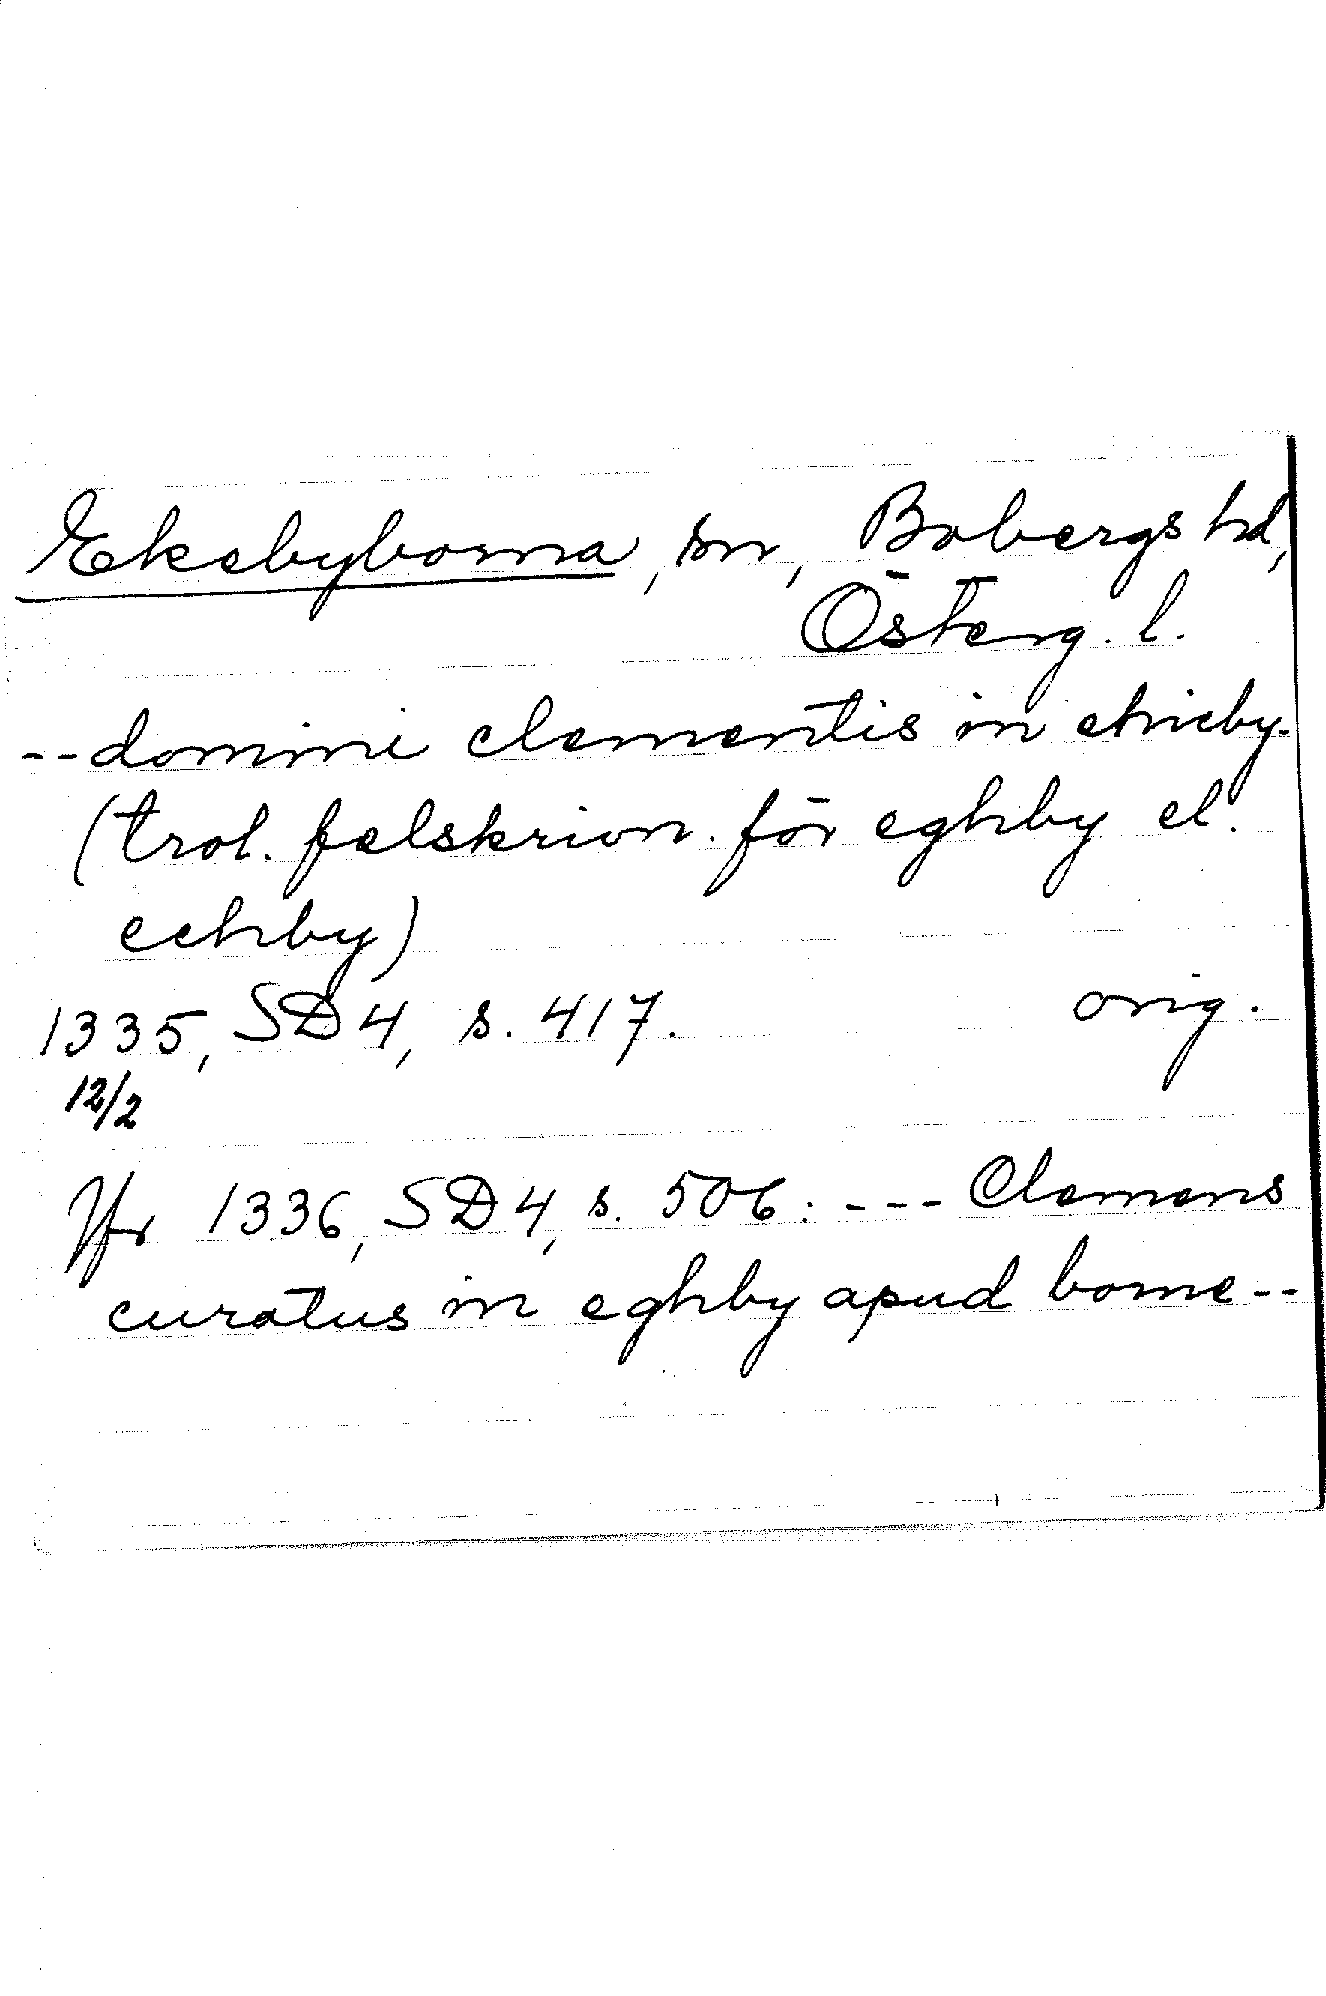 Ekebyborna, sn, Bobergs hd,
Österg. l.
-- domini clementis in ehrieby.
(trol. felskrivn. för eghby el.
echby)
1335, SD 4, s. 417. orig.
12/2
Jfr 1336, SD 4, s. 506: --- Clemens
curatus in eghby apud borne --